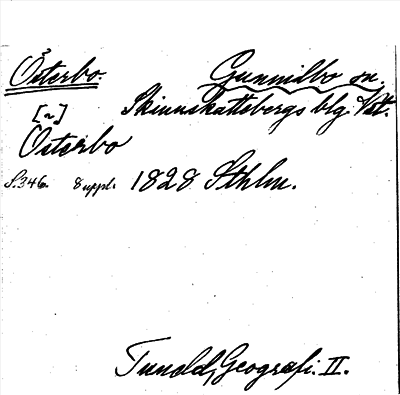 Österbo. Gunnilbo sn.
Skinnskattebergs blg. Vstm.
[~]
Österbo
S. 346. 8 uppl. 1828 Sthlm.
Tuneld, Geografi. II.